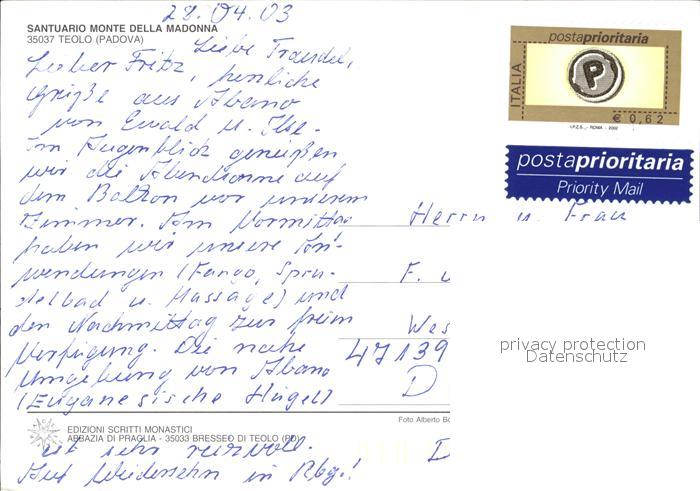 28.04.03
SANTUARIO MONTE DELLA MADONNA
35037 TEOLO (PADOVA)
Liebe Traudel,
Lieber Fritz, herzliche
Grüße aus Abano
von Ewald u. Ilse.
Im Augenblick genießen
wir die Abendsonne auf
dem Balkon vor unserem
Zimmer. Am Vormittag
haben wir unsere An-
wendungen (Fango, Spru-
delbad u. Massage) und
den Nachmittag zur freien
Verfügung. Die nahe
Umgebung von Abano
(Euganeische Hügel)
ist sehr reizvoll.
Auf Wiedersehn in Rbg.!
EDIZIONI SCRITTI MONASTICI
ABBAZIA DI PRAGLIA - 35033 BRESSEO DI TEOLO (PD)
Foto Alberto
ITALIA
postaprioritaria
P
€ 0,62
I.P.Z.S. - ROMA - 2002
postaprioritaria
Priority Mail
Herrn u. Frau
F. u
Wes
47139
D
privacy protection
Datenschutz